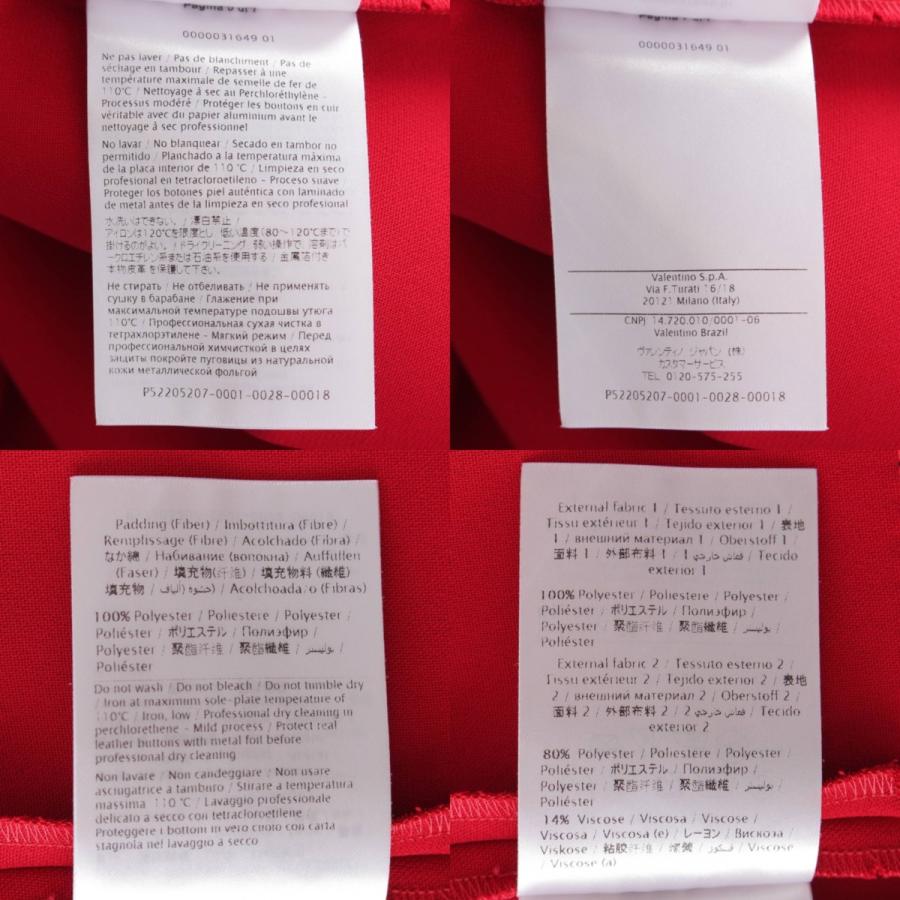 0000031649 01
Ne pas laver / Pas de blanchiment / Pas de
séchage en tambour / Repasser à une
température maximale de semelle de fer de
110°C / Nettoyage à sec au Perchloréthylène -
Processus modéré / Protéger les boutons en cuir
véritable avec du papier aluminium avant le
nettoyage à sec professionnel
No lavar / No blanquear / Secado en tambor no
permitido / Planchado a la temperatura máxima
de la placa interior de 110 °C / Limpieza en seco
profesional en tetracloroetileno - Proceso suave /
Proteger los botones piel auténtica con laminado
de metal antes de la limpieza en seco profesional
水洗いはできない。/ 漂白禁止 /
アイロンは120℃を限度とし 低い温度(80〜120℃まで)で
掛けるのがよい。/ ドライクリーニング 弱い操作で、溶剤はパ
ークロエチレン系または石油系を使用する / 金属箔付き
本物皮革を保護して下さい。
Не стирать / Не отбеливать / Не применять
сушку в барабане / Глажение при
максимальной температуре подошвы утюга
110°C / Профессиональная сухая чистка в
тетрахлорэтилене - Мягкий режим / Перед
профессиональной химчисткой в целях
защиты покройте пуговицы из натуральной
кожи металлической фольгой
P52205207-0001-0028-00018
0000031649 01
Valentino S.p.A.
Via F.Turati 16/18
20121 Milano (Italy)
CNPJ 14.720.010/0001-06
Valentino Brazil
ヴァレンティノ ジャパン (株)
カスタマーサービス
TEL 0120-575-255
P52205207-0001-0028-00018
Padding (Fiber) / Imbottitura (Fibre) /
Remplissage (Fibre) / Acolchado (Fibra) /
なか綿 / Набивание (волокна) / Auffüllen
(Faser) / 填充物(纤维) / 填充物料 (纖維)
填充物 / حشوة (ألياف) / Acolchoada/o (Fibras)
100% Polyester / Poliestere / Polyester /
Poliéster / ポリエステル / Полиэфир /
Polyester / 聚酯纤维 / 聚酯纖維 / بوليستر /
Poliéster
Do not wash / Do not bleach / Do not tumble dry
/ Iron at maximum sole-plate temperature of
110°C / Iron, low / Professional dry cleaning in
perchlorethene - Mild process / Protect real
leather buttons with metal foil before
professional dry cleaning
Non lavare / Non candeggiare / Non usare
asciugatrice a tamburo / Stirare a temperatura
massima 110 °C / Lavaggio professionale
delicato a secco con tetracloroetilene /
Proteggere i bottoni in vero cuoio con carta
stagnola nel lavaggio a secco
External fabric 1 / Tessuto esterno 1 /
Tissu extérieur 1 / Tejido exterior 1 / 表地
1 / внешний материал 1 / Oberstoff 1 /
面料 1 / 外部布料 1 / قماش خارجي 1 / Tecido
exterior 1
100% Polyester / Poliestere / Polyester /
Poliéster / ポリエステル / Полиэфир /
Polyester / 聚酯纤维 / 聚酯纖維 / بوليستر /
Poliéster
External fabric 2 / Tessuto esterno 2 /
Tissu extérieur 2 / Tejido exterior 2 / 表地
2 / внешний материал 2 / Oberstoff 2 /
面料 2 / 外部布料 2 / قماش خارجي 2 / Tecido
exterior 2
80% Polyester / Poliestere / Polyester /
Poliéster / ポリエステル / Полиэфир /
Polyester / 聚酯纤维 / 聚酯纖維 / بوليستر /
Poliéster
14% Viscose / Viscosa / Viscose /
Viscosa / Viscosa (e) / レーヨン / Вискоза /
Viskose / 粘胶纤维 / 嫘縈 / فسكوز /
Viscose (a)